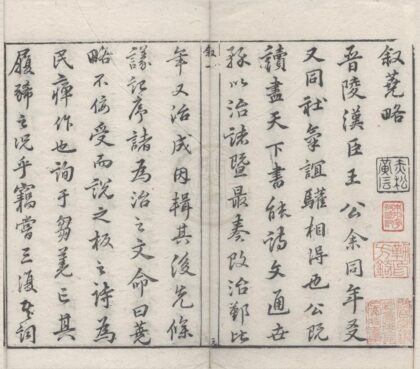 叙蕘略
晋陵漢臣王公余同年友
又同社氣誼驩相得也公既
讀盡天下書能詩文通世
務以治諸暨最奏改治鄞比
叙
年又治成因輯其後先條
議記序諸為治之文命曰蕘
略不佞受而說之板之詩為
民瘅作也詢于芻蕘亡其
履之况乎竊嘗三復詞